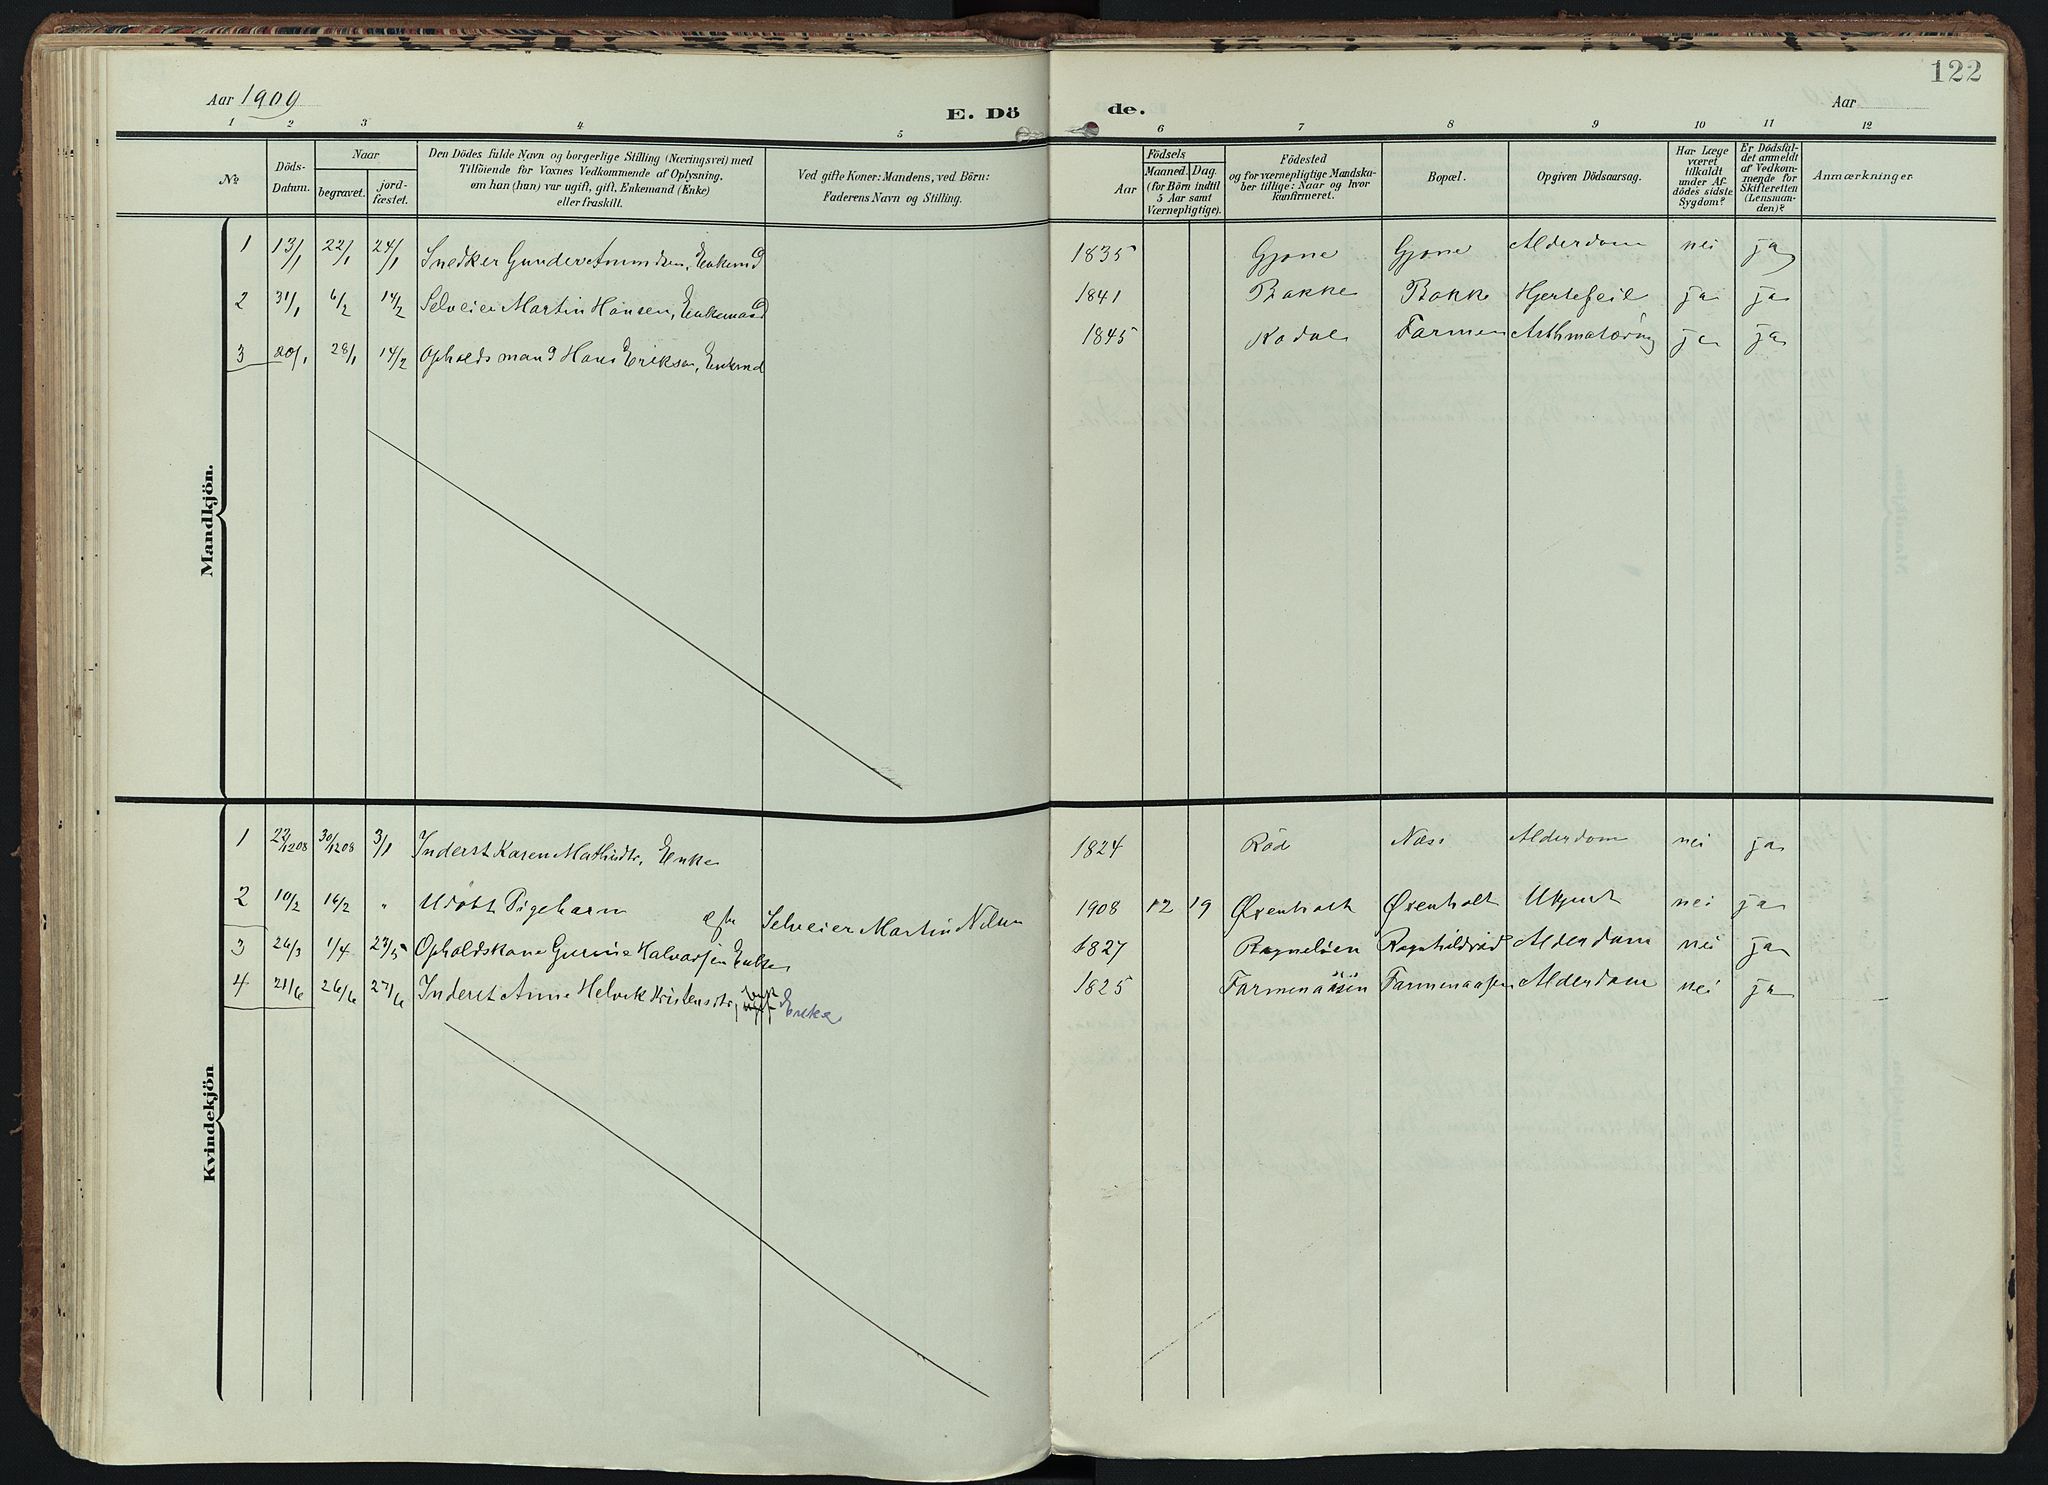 122
Aar 1909
E. Dö de.
Aar
1 2 3 4 5 6 7 8 9 10 11 12
No.
Döds-Datum.
Naar
begravet.
jord-fæstet.
Den Dödes fulde Navn og borgerlige Stilling (Næringsvei) med
Tilföiende for Voxnes Vedkommende af Oplysning,
om han (hun) var ugift, gift, Enkemand (Enke)
eller fraskilt.
Ved gifte Koner: Mandens, ved Börn:
Faderens Navn og Stilling.
Aar
Födsels
Maaned. Dag.
(for Börn indtil
5 Aar samt
Værnepligtige).
Födested
og for værnepligtige Mandska-
ber tillige: Naar og hvor
konfirmeret.
Bopæl.
Opgiven Dödsaarsag.
Har Læge
været
tilkaldt
under Af-
dödes sidste
Sygdom?
Er Dödsfal-
det anmeldt
af Vedkom-
mende for
Skifteretten
(Lensman-
den)?
Anmærkninger.
Mandkjön.
1 13/1 22/1 24/1 Snedker Gunder Amundsen, Enkemd 1835 Gjone Gjone Alderdom nei ja
2 31/1 6/2 14/2 Selveier Martin Hansen, Enkemand 1841 Bakke Bakke Hjertefeil ja ja
3 20/1 28/1 14/2 Opholdsmand Hans Erikson, Enkemd 1845 Kodal Farmen ja ja
Kvindekjön
1 22/12 08 30/12 08 3/1 Inderst Karen Mathisdtr, Enke 1824 Röd Næss Alderdom nei ja
2 10/2 16/2 " Udöbt Pigebarn af Selveier Martin Nilsen 1908 12 19 Øxenholt Øxenholt Ukjent nei ja
3 26/3 1/4 23/5 Opholdskone Gurine Halvorsen Enke 1827 Ragnhildröd Alderdom nei ja
4 21/6 26/6 27/6 Inderst Anne Helvik Kristensdtr, Enke 1825 Farmenaasen Farmenaasen Alderdom nei ja